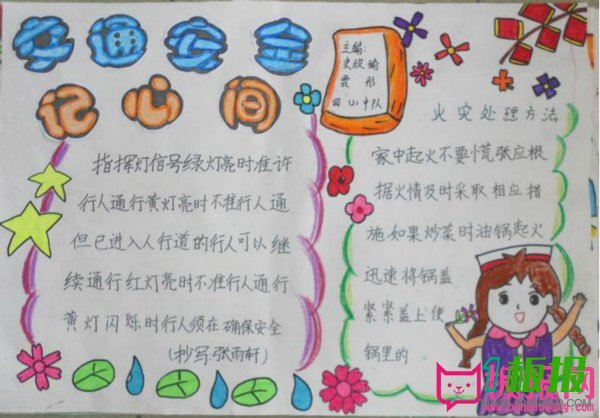 交通安全
记心间
主编:
史欣瑜
贾彤
四(2)中队
指挥灯信号绿灯亮时准许
行人通行黄灯亮时不准行人通
但已进入人行道的行人可以继
续通行红灯亮时不准行人通行
黄灯闪烁时行人须在确保安全
(抄写:张雨轩)
火灾处理方法
家中起火不要慌张应根
据火情及时采取相应措
施如果炒菜时油锅起火
迅速将锅盖
紧紧盖上使
锅里的
板报网